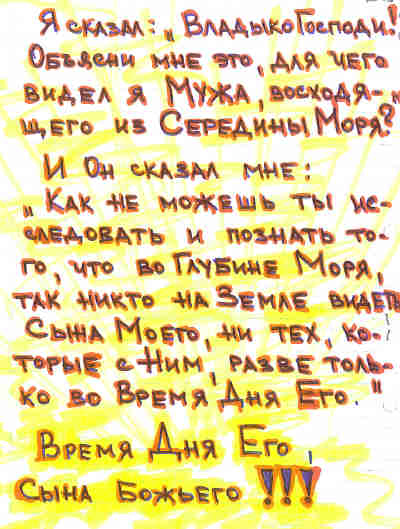 Я сказал: „Владыко Господи!
Объясни мне это, для чего
видел я Мужа, восходя-
щего из Середины Моря?"
И Он сказал мне:
„Как не можешь ты ис-
следовать и познать то-
го, что во Глубине Моря,
так никто на Земле видеть
Сына Моего, ни тех, ко-
торые с Ним, разве толь-
ко во Время Дня Его."
Время Дня Его,
Сына Божьего!!!